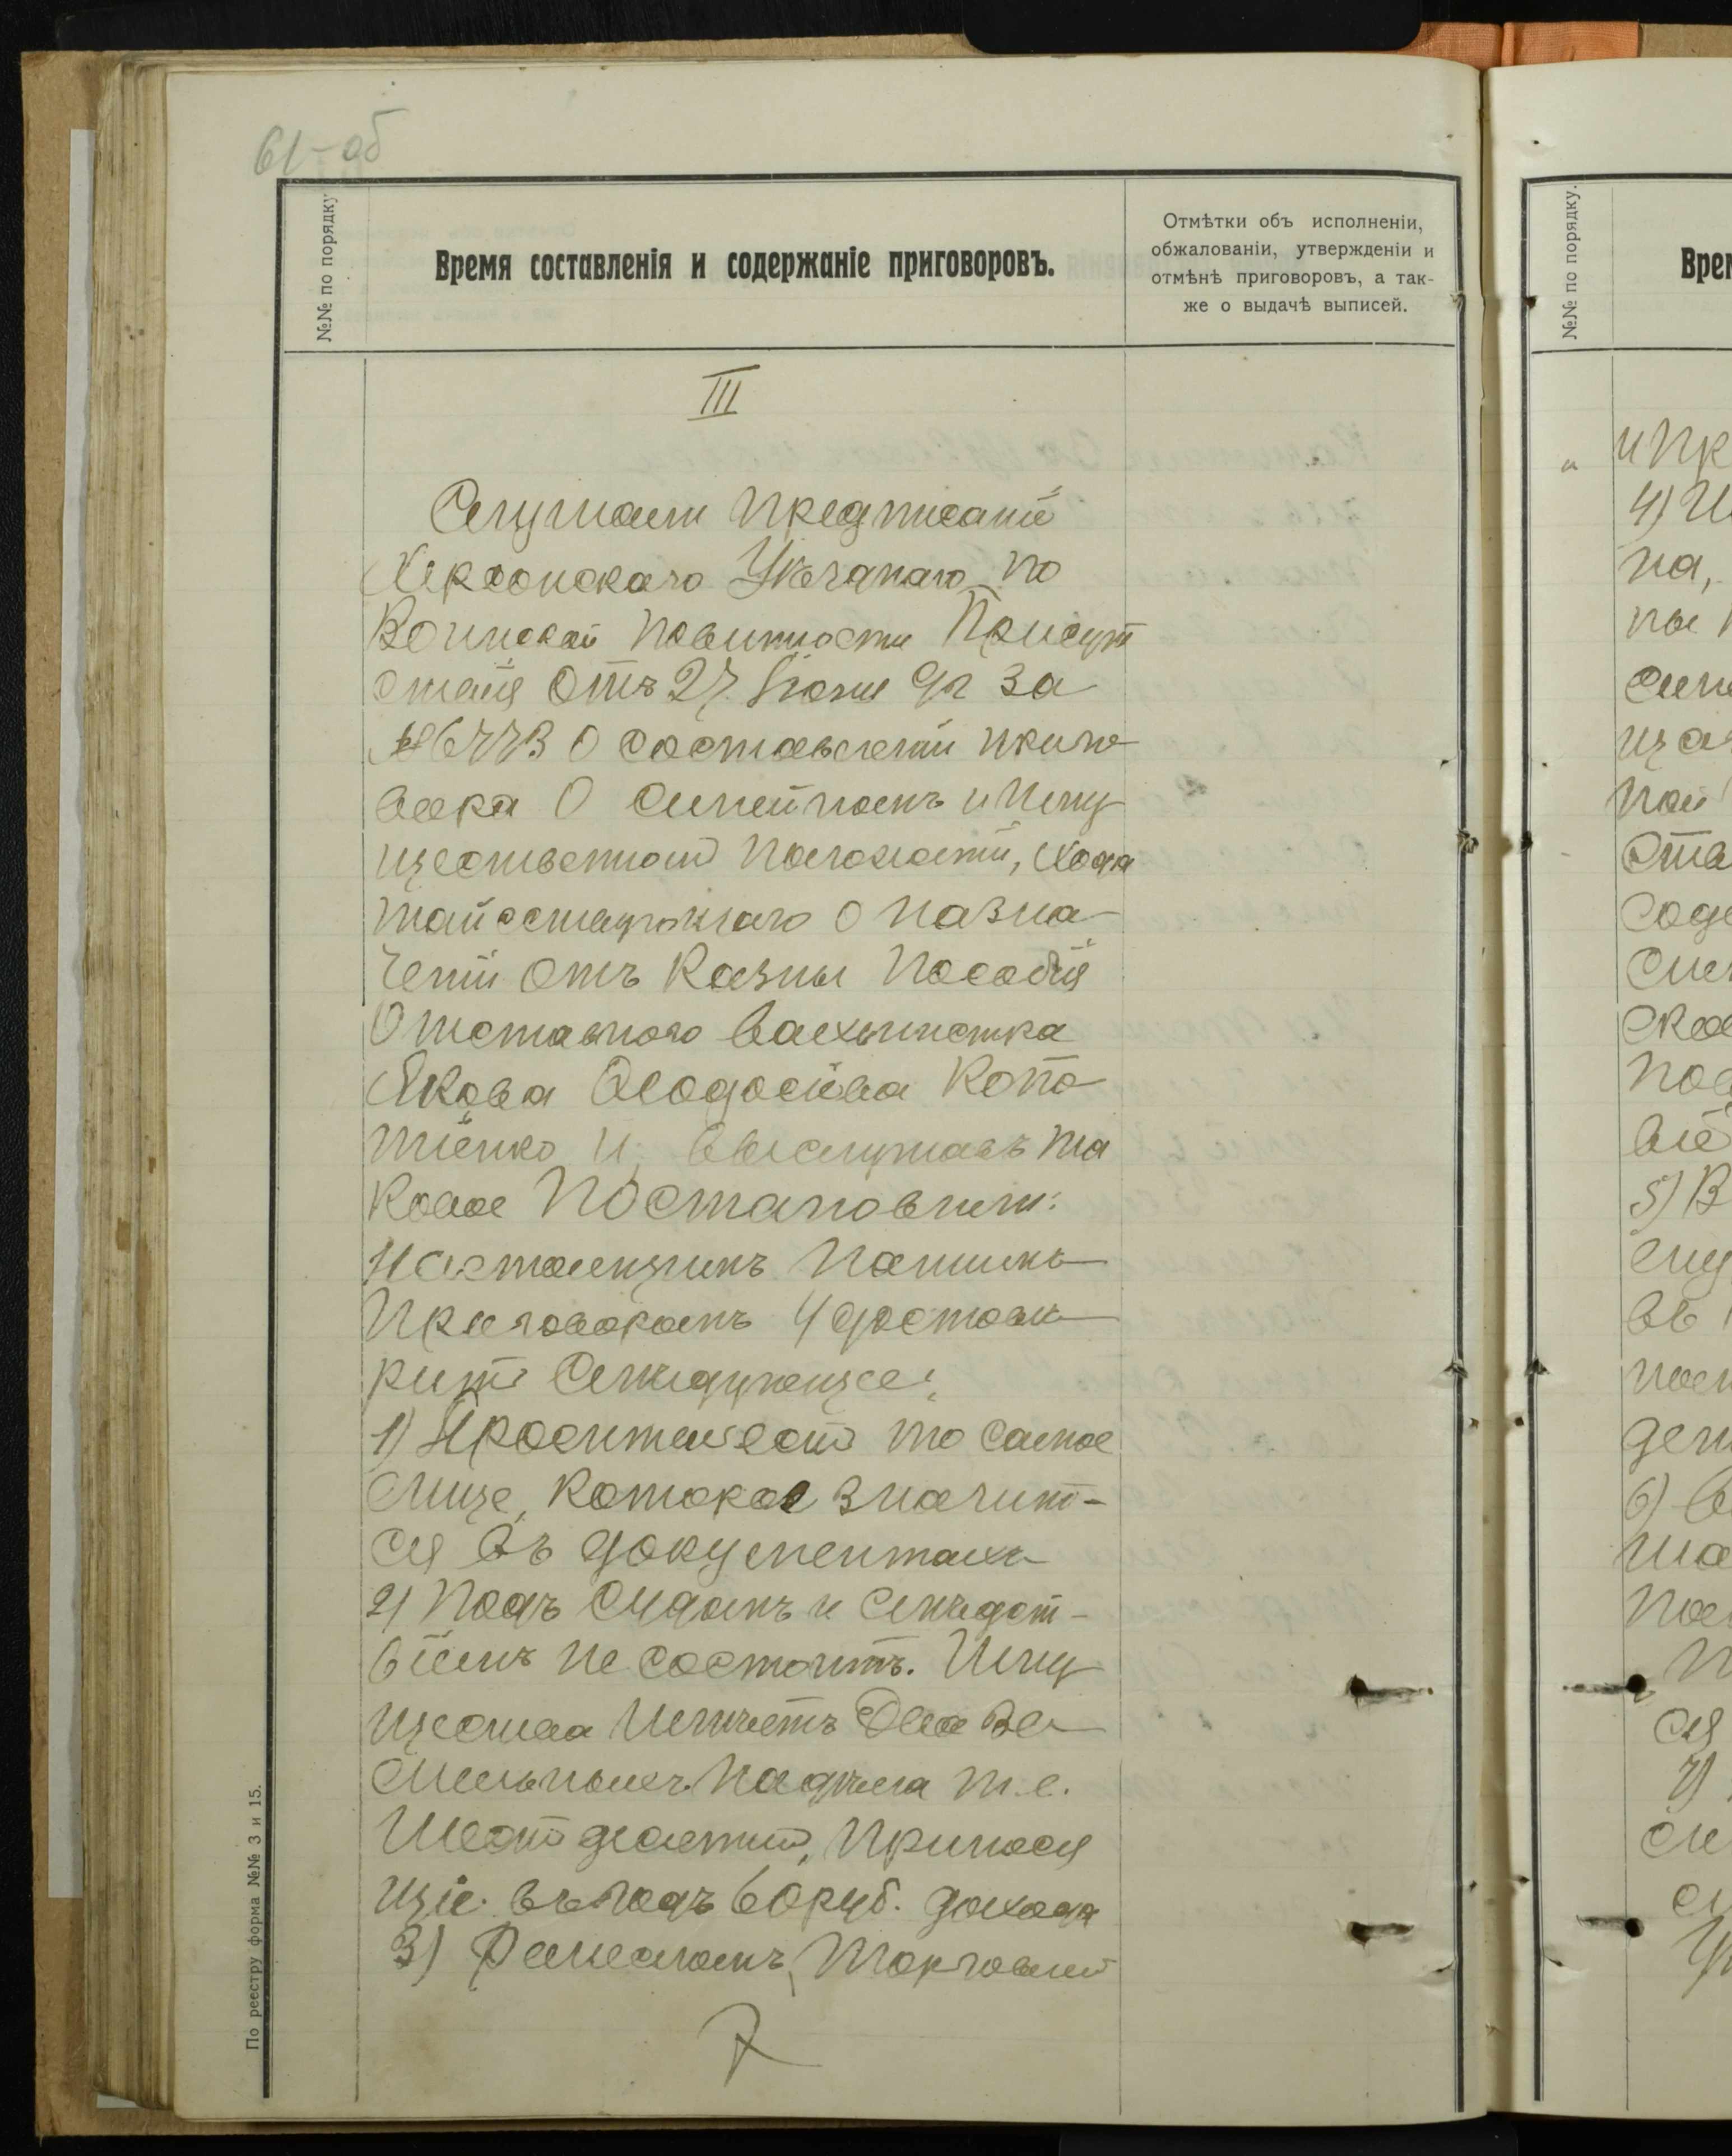 61-об
№№ по порядку
Время составленія и содержаніе приговоровъ.
Отмѣтки объ исполненіи,
обжалованіи, утвержденіи и
отмѣнѣ приговоровъ, а так-
же о выдачѣ выписей.
III
Слушали предписаніе
Херсонскаго Уѣзднаго по
Воинской повинности Присут
ствія отъ 27 Іюня за
№ о составленіи приго
вора о семейномъ и иму
щественномъ положеніи, хода
тайствующаго о назна-
ченіи отъ казны пособія
Отставного вахмистра
Якова Феодосіева
и, выслушавъ та
ковое Постановили:
Настоящимъ нашимъ
приговоромъ удостовѣ
рить слѣдующее:
1) Проситель есть то самое
лице, которое значит-
ся въ документахъ
2) Подъ судомъ и слѣдст-
віемъ не состоитъ. Иму
щества имѣетъ два зе
мельныхъ надѣла т.е.
шесть десятинъ, принося
щіе въ годъ 60 руб. дохода
3) Ремесломъ, торговлей
По реестру форма №№ 3 и 15.
№№ по порядку.
Врем
"
4)
5) В
6)
7)